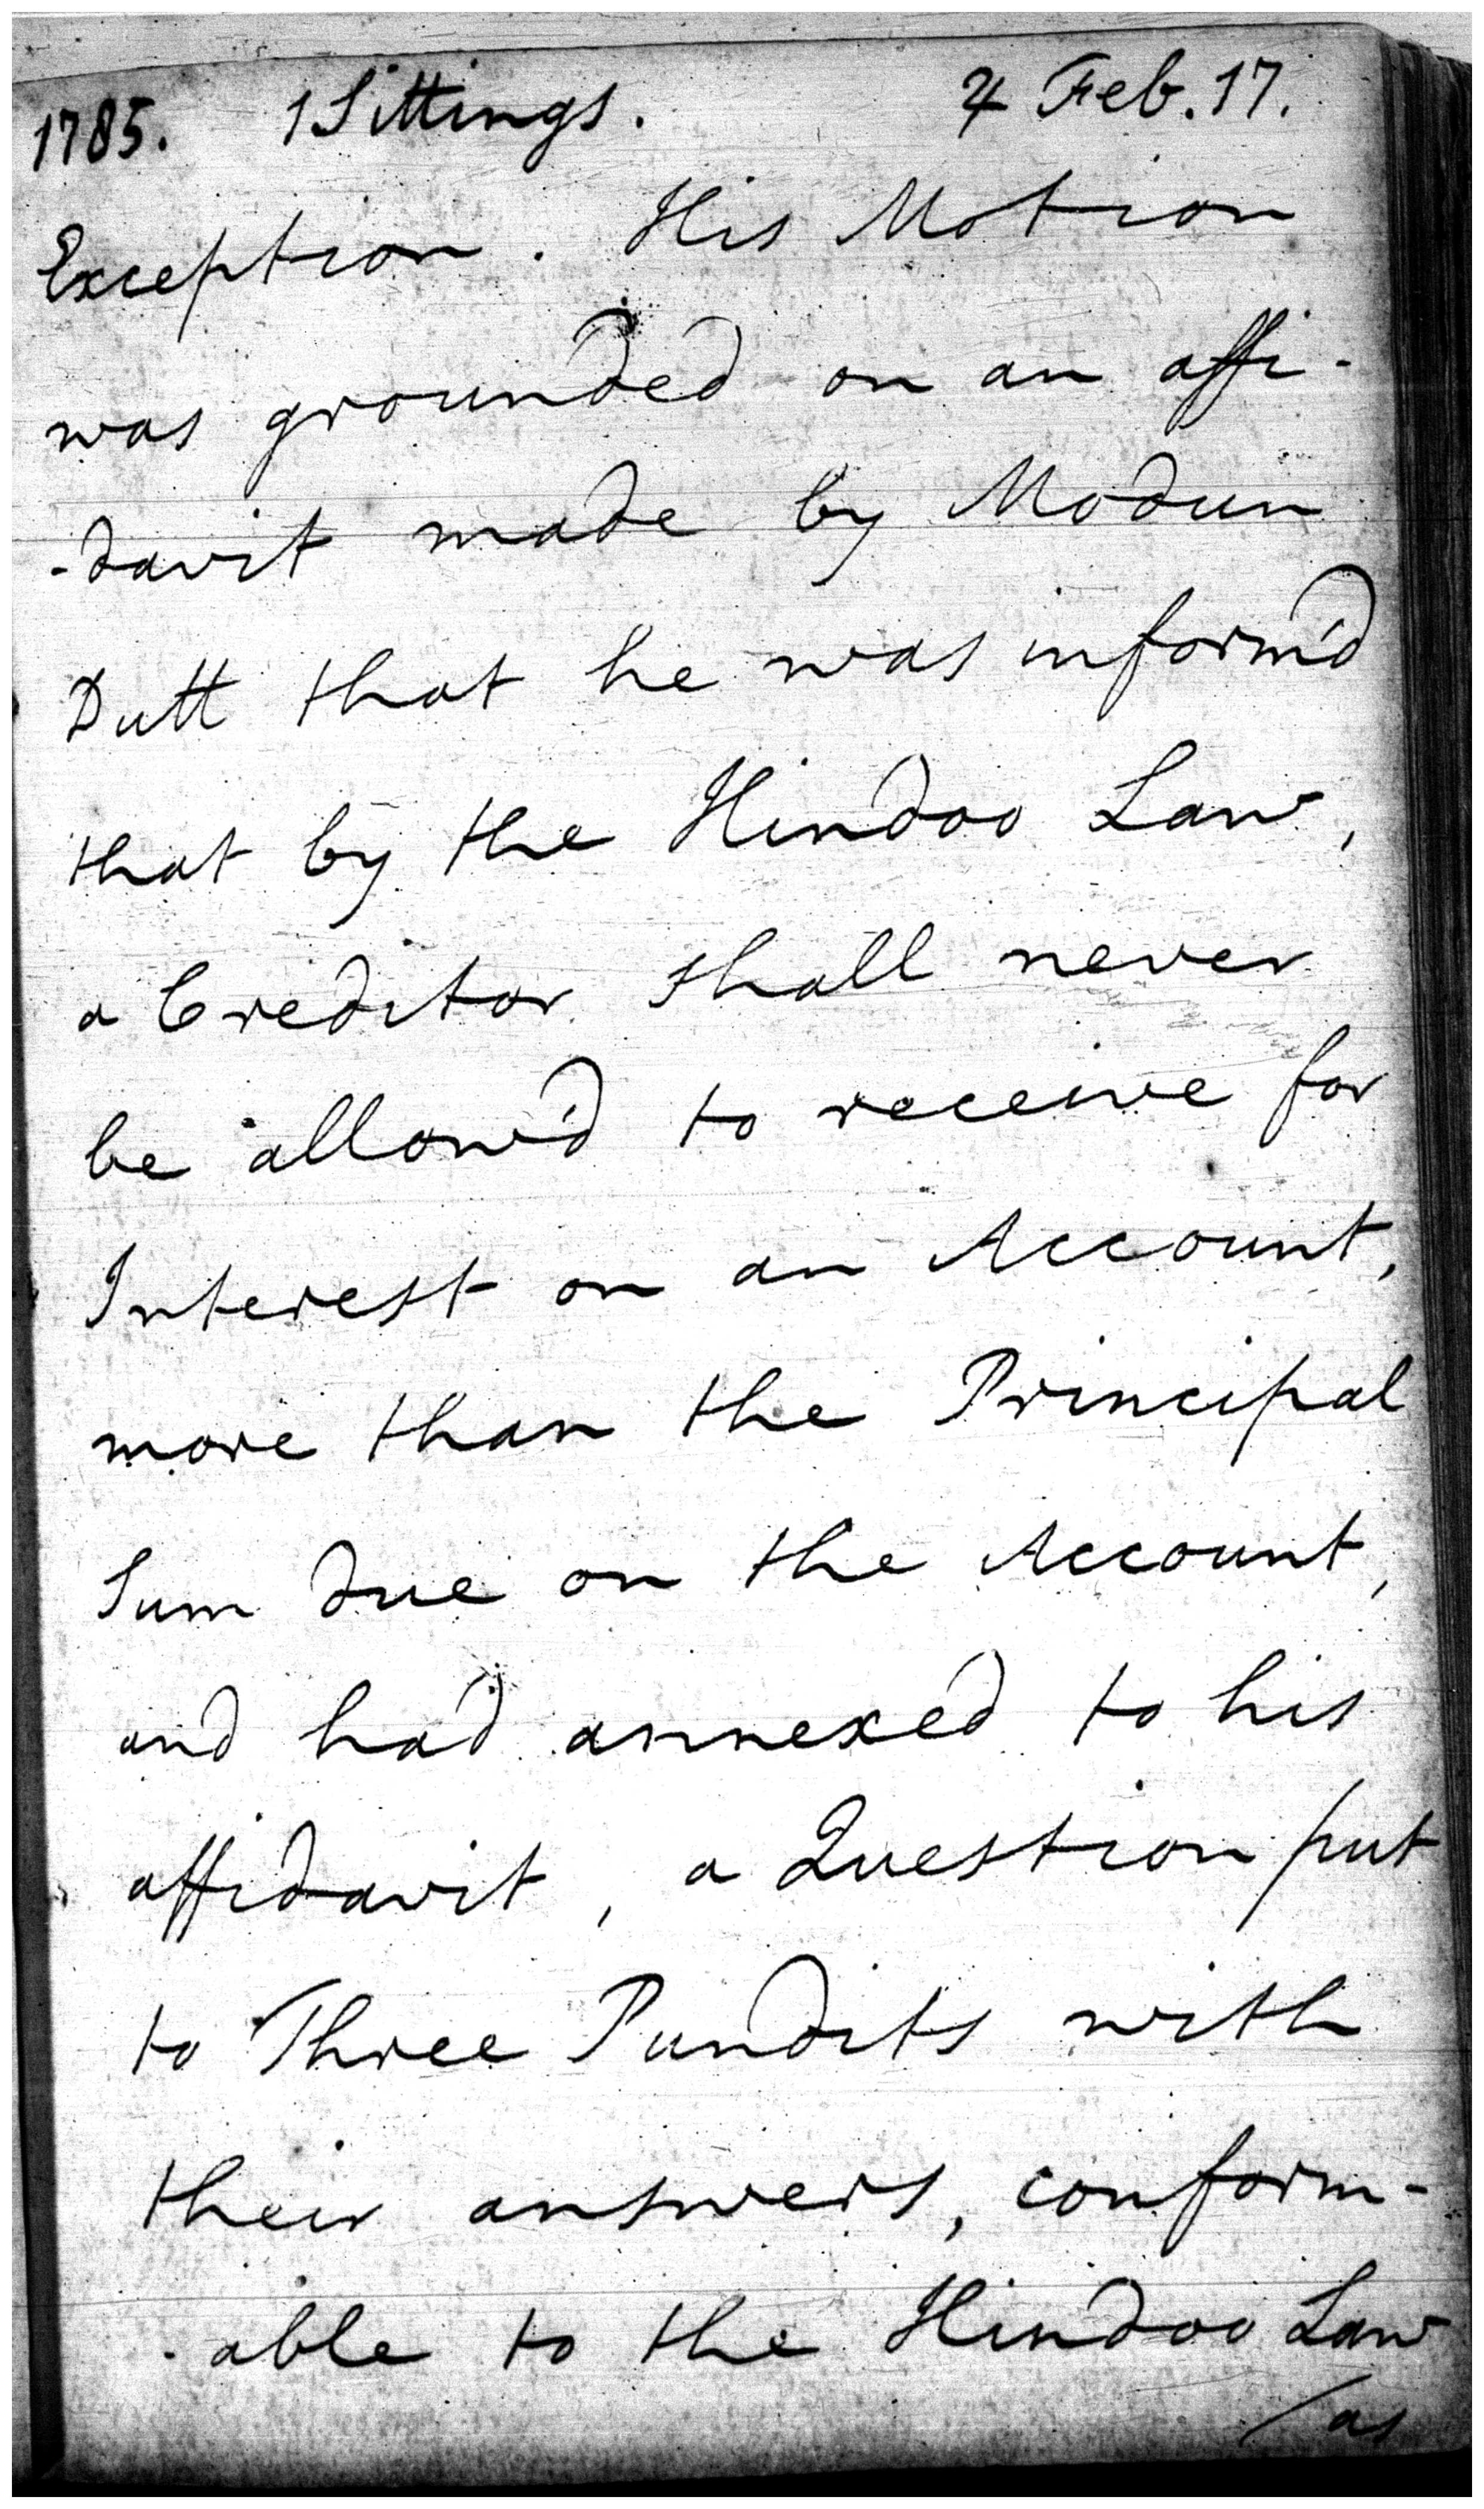 1785. 1 Sittings. ♃ Feb. 17.
Exception. His Motion
was grounded on an affi-
-davit made by Modun
Dutt that he was inform'd
that by the Hindoo Law,
a Creditor shall never
be allow'd to receive for
Interest on an Account,
more than the Principal
Sum due on the Account,
and had annexed to his
affidavit, a Question put
to Three Pundits with
their answers, conform-
-able to the Hindoo Law
/as